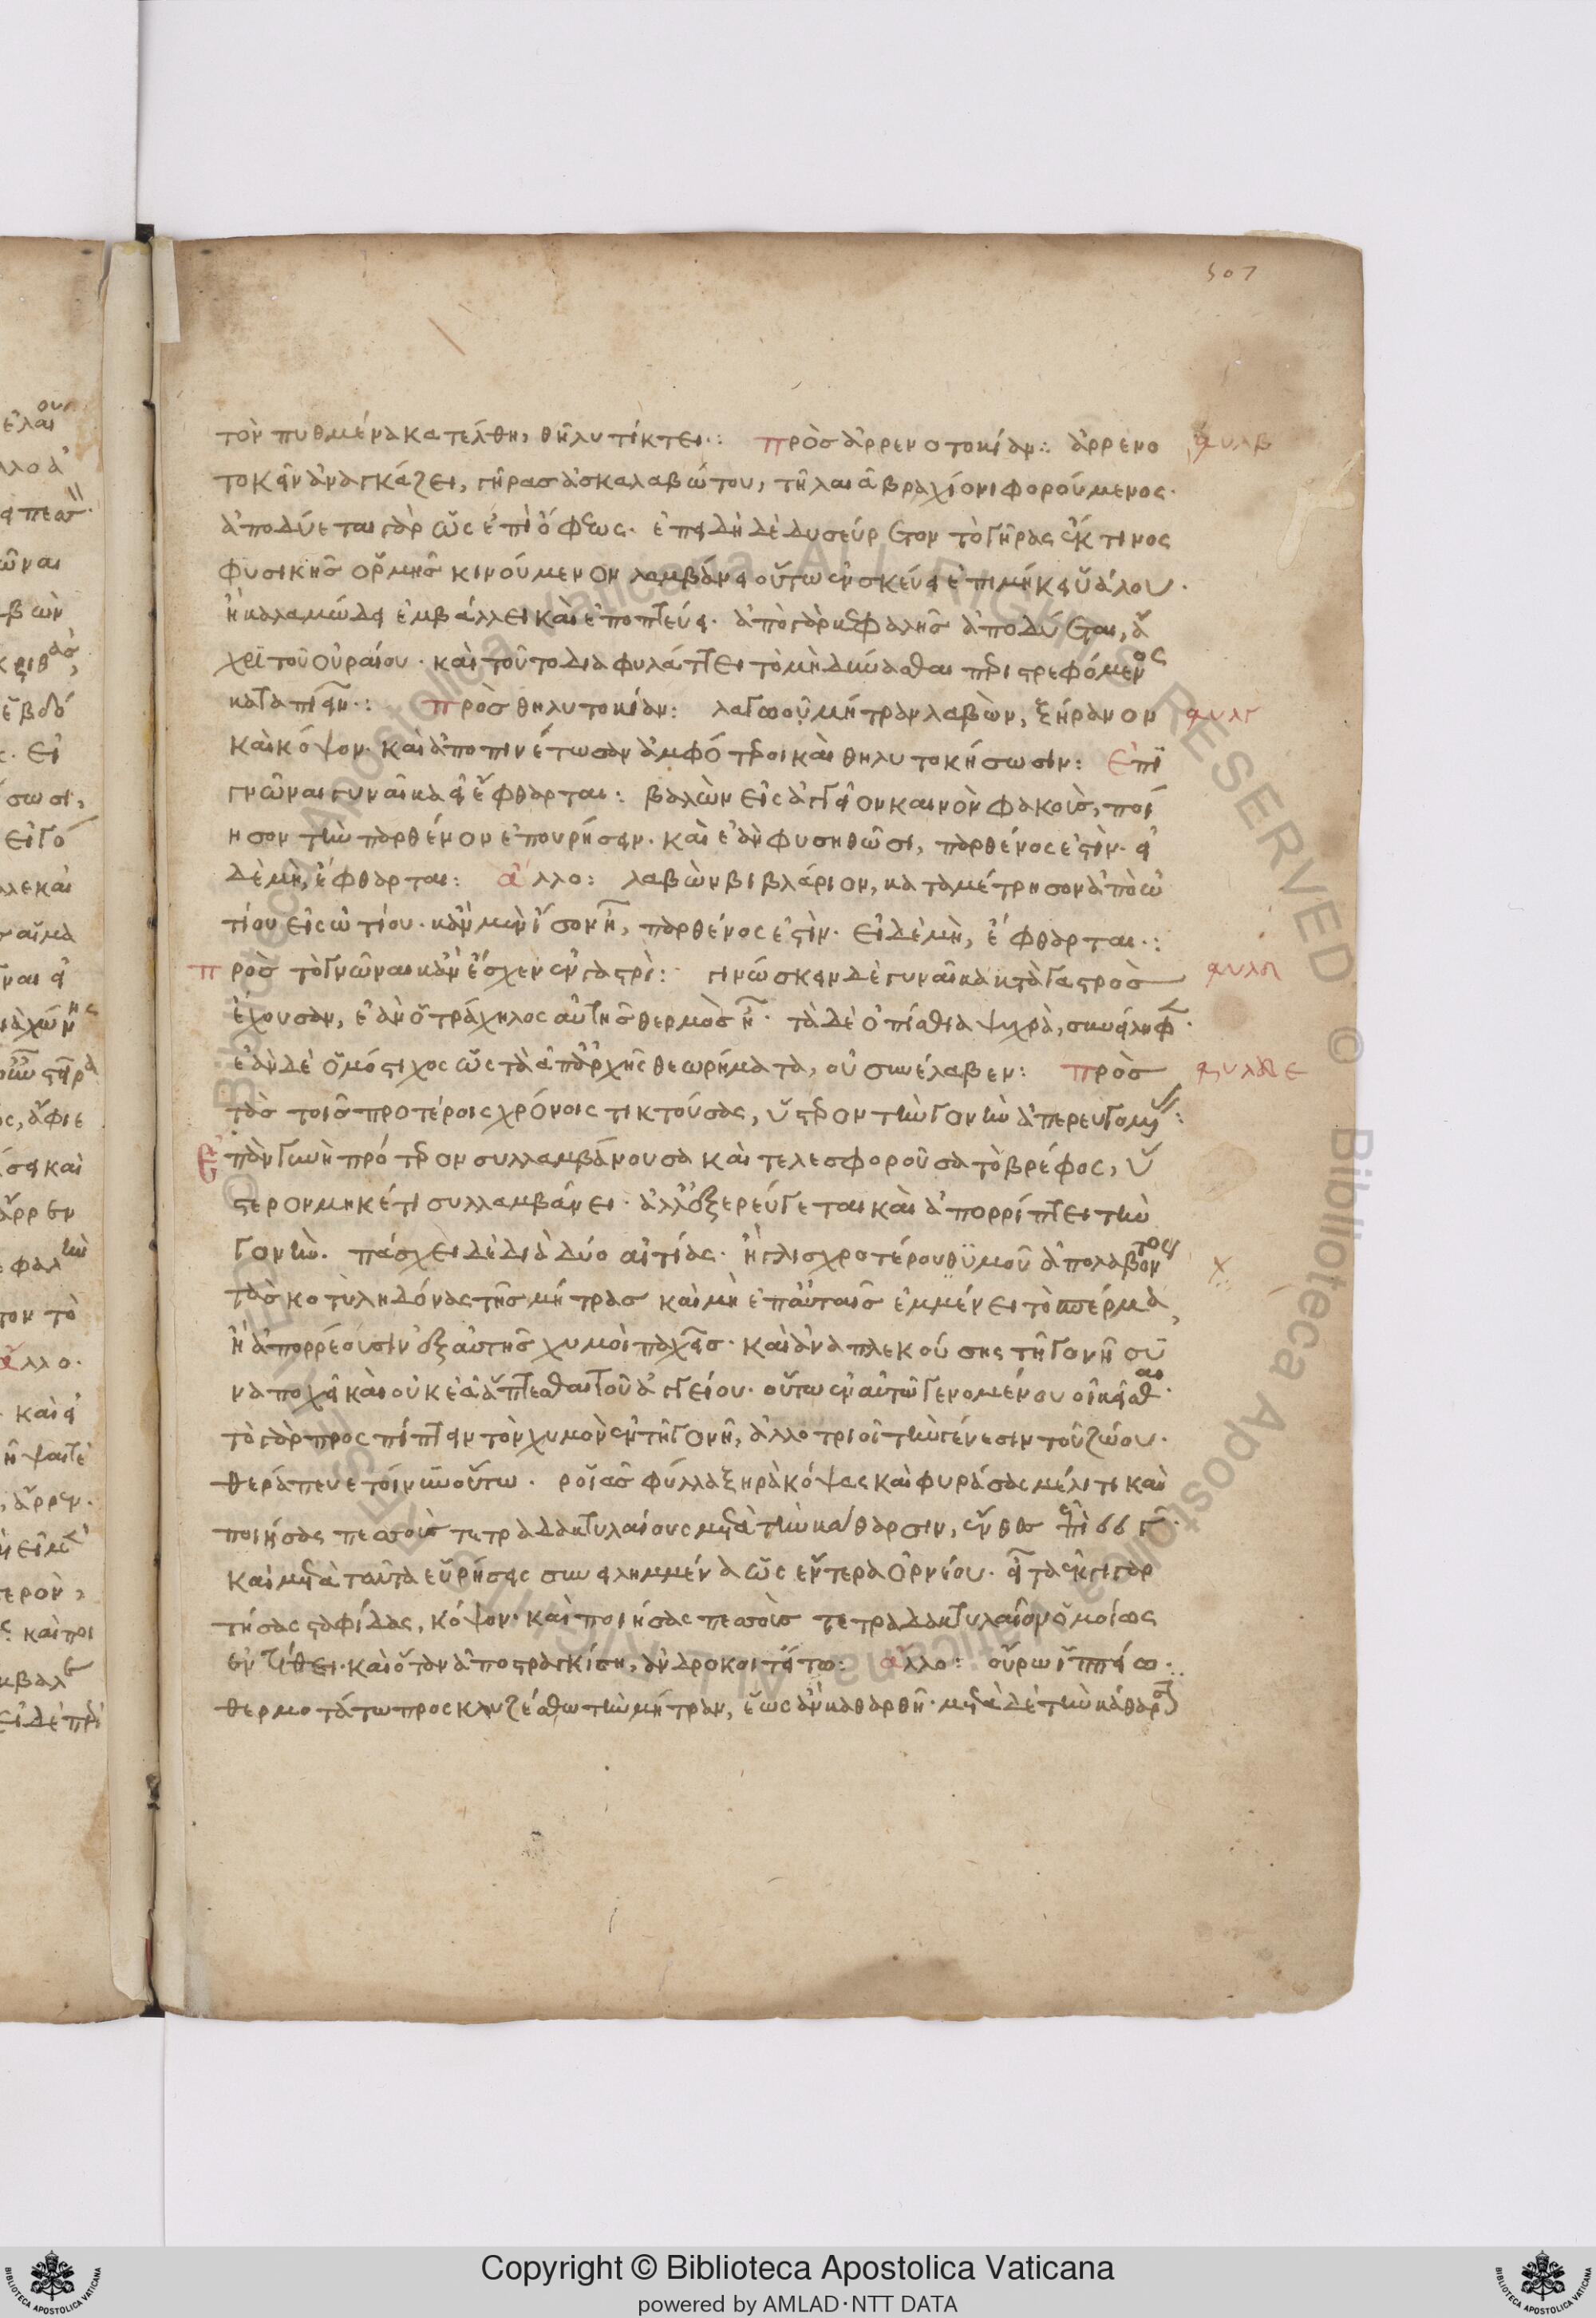 507
τὸν πυθμένα κατέλθη, θῆλυ τίκτει: πρὸς ἀρρενοτοκίαν: ἀρρενο
τοκεῖν ἀναγκάζει, γῆρας ἀσκαλαβώτου, τῆ λαιᾶ βραχίονι φορούμενος·
ἀποδύεται γὰρ ὡς ἐπὶ ὄφεως· ἐπειδὴ δὲ δυσεύρετον τὸ γῆρας ἔκ τινος
φυσικῆς ὁρμῆς κινούμενον λαμβάνει οὕτως ἐν σκεύει ἐπιμήκει ὑάλου·
ἢ καλαμώδει ἐμβάλλει καὶ ἐποπτεύει· ἀπὸ γὰρ κεφαλῆς ἀποδύεται, ἄ
χρι τοῦ οὐραίου· καὶ τοῦτο διαφυλάττει τὸ μὴ περιστρεφόμενος
καταπιεῖν: πρὸς θηλυτοκίαν: λαγωοῦ μήτραν λαβὼν, ξήρανον
φυλγ
καὶ κόψον· καὶ ἀποπινέτωσαν ἀμφότεροι καὶ θηλυτοκήσωσιν: Ἐπὶ
γνῶναι γυναῖκα εἰ ἔφθαρται: βαλὼν εἰς ἀγγεῖον καινὸν φακοὺς, ποί
ησον τὴν παρθένον ἐπουρήσειν· καὶ ἐὰν φυσηθῶσι, παρθένος ἐστὶν· εἰ
δὲ μὴ, ἔφθαρται: ἄλλο: λαβὼν βιβλάριον, καταμέτρησον ἀπὸ ὠ
τίου εἰς ὠτίου· κἂν μὲν ἴσον ἦ, παρθένος ἐστὶν· εἰ δὲ μὴ, ἔφθαρται:
πρὸς τὸ γνῶναι κἂν ἔσχεν ἐν γαστρὶ: γινώσκειν δὲ γυναῖκα κατὰ γαστρὸς
ἔχουσαν, ἐὰν ὁ τράχηλος αὐτῆς θερμὸς ἦ· τὰ δὲ ὀπίσθια ψυχρὰ, συνείληφε·
ἐὰν δὲ ὁμόστιχος ὡς τὰ ἀπαρχῆς θεωρήματα, οὐ συνέλαβεν: πρὸς
τὰς τοῖς προτέροις χρόνοις τικτούσας, ὕστερον τὴν γονὴν ἀπερευγομένας:
Ἐπὰν γυνὴ πρότερον συλλαμβάνουσα καὶ τελεσφοροῦσα τὸ βρέφος, ὕ
στερον μηκέτι συλλαμβάνει· ἀλλ' ἐξερεύγεται καὶ ἀπορρίπτει τὴν
γονὴν· πάσχει δὲ διὰ δύο αἰτίας· ἢ γλισχροτέρου θυμοῦ ἀπολαβόντος
τὰς κοτυληδόνας τῆς μήτρας καὶ μὴ ἐπ' αὐταῖς ἐμμένει τὸ σπέρμα,
ἢ ἀπορρέουσιν ἐξ αὐτῆς χυμοὶ παχεῖς· καὶ ἀναπλεκούσης τῆ γονῆ συ
ναποχεῖ καὶ οὐκ ἐᾶ ἅπτεσθαι τοῦ ἀγγείου· οὕτως ἐν αὐτῶ γενομένου οἰκεῖσθαι·
τὸ γὰρ προσπίπτειν τὸν χυμὸν ἐν τῆ γονῆ, ἀλλοτριοῖ τὴν γένεσιν τοῦ ζώου·
θεράπευε τοίνυν οὕτω· ῥοιᾶς φύλλα ξηρὰ κόψας καὶ φυράσας μέλιτι καὶ
ποιήσας πεσσοὺς τετραδακτυλαίους μετὰ τὴν κάθαρσιν,
καὶ μετὰ ταῦτα εὑρήσεις συνειλημμένα ὡς ἔντερα ὀρνίου·
τήσας σταφίδας, κόψον· καὶ ποιήσας πεσσοὺς τετραδακτυλαῖον ὁμοίως
ἐντίθει· καὶ ὅταν ἀποστρακίση, ἀνδροκοιτείτω: ἄλλο: οὔρω ἱππείω·
θερμοτάτω προσκλυζέσθω τὴν μήτραν, ἕως ἂν καθαρθῆ· μετὰ δὲ τὴν κάθαρσιν
Copyright © Biblioteca Apostolica Vaticana
powered by AMLAD·NTT DATA